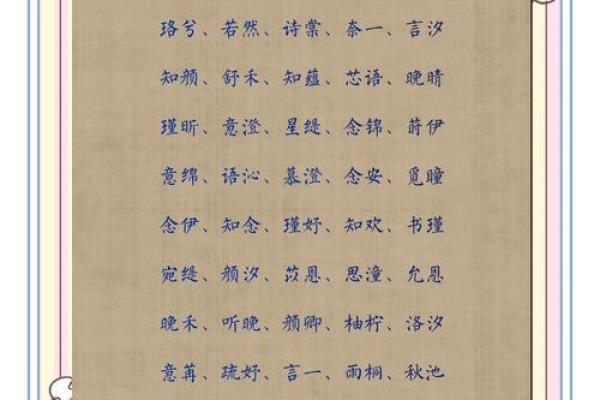 珞兮、若然、诗棠、奈一、言汐
知颜、舒禾、知蕴、芯语、晚晴
瑾昕、意澄、星缇、念锦、莳伊
意绵、语沁、慕澄、念安、觅瞳
念伊、知念、瑾妤、知欢、书瑾
宛缇、颜汐、苡恩、思潼、允恩
晚禾、听晚、颜卿、柚柠、洛汐
意苒、疏妤、言一、雨桐、秋池